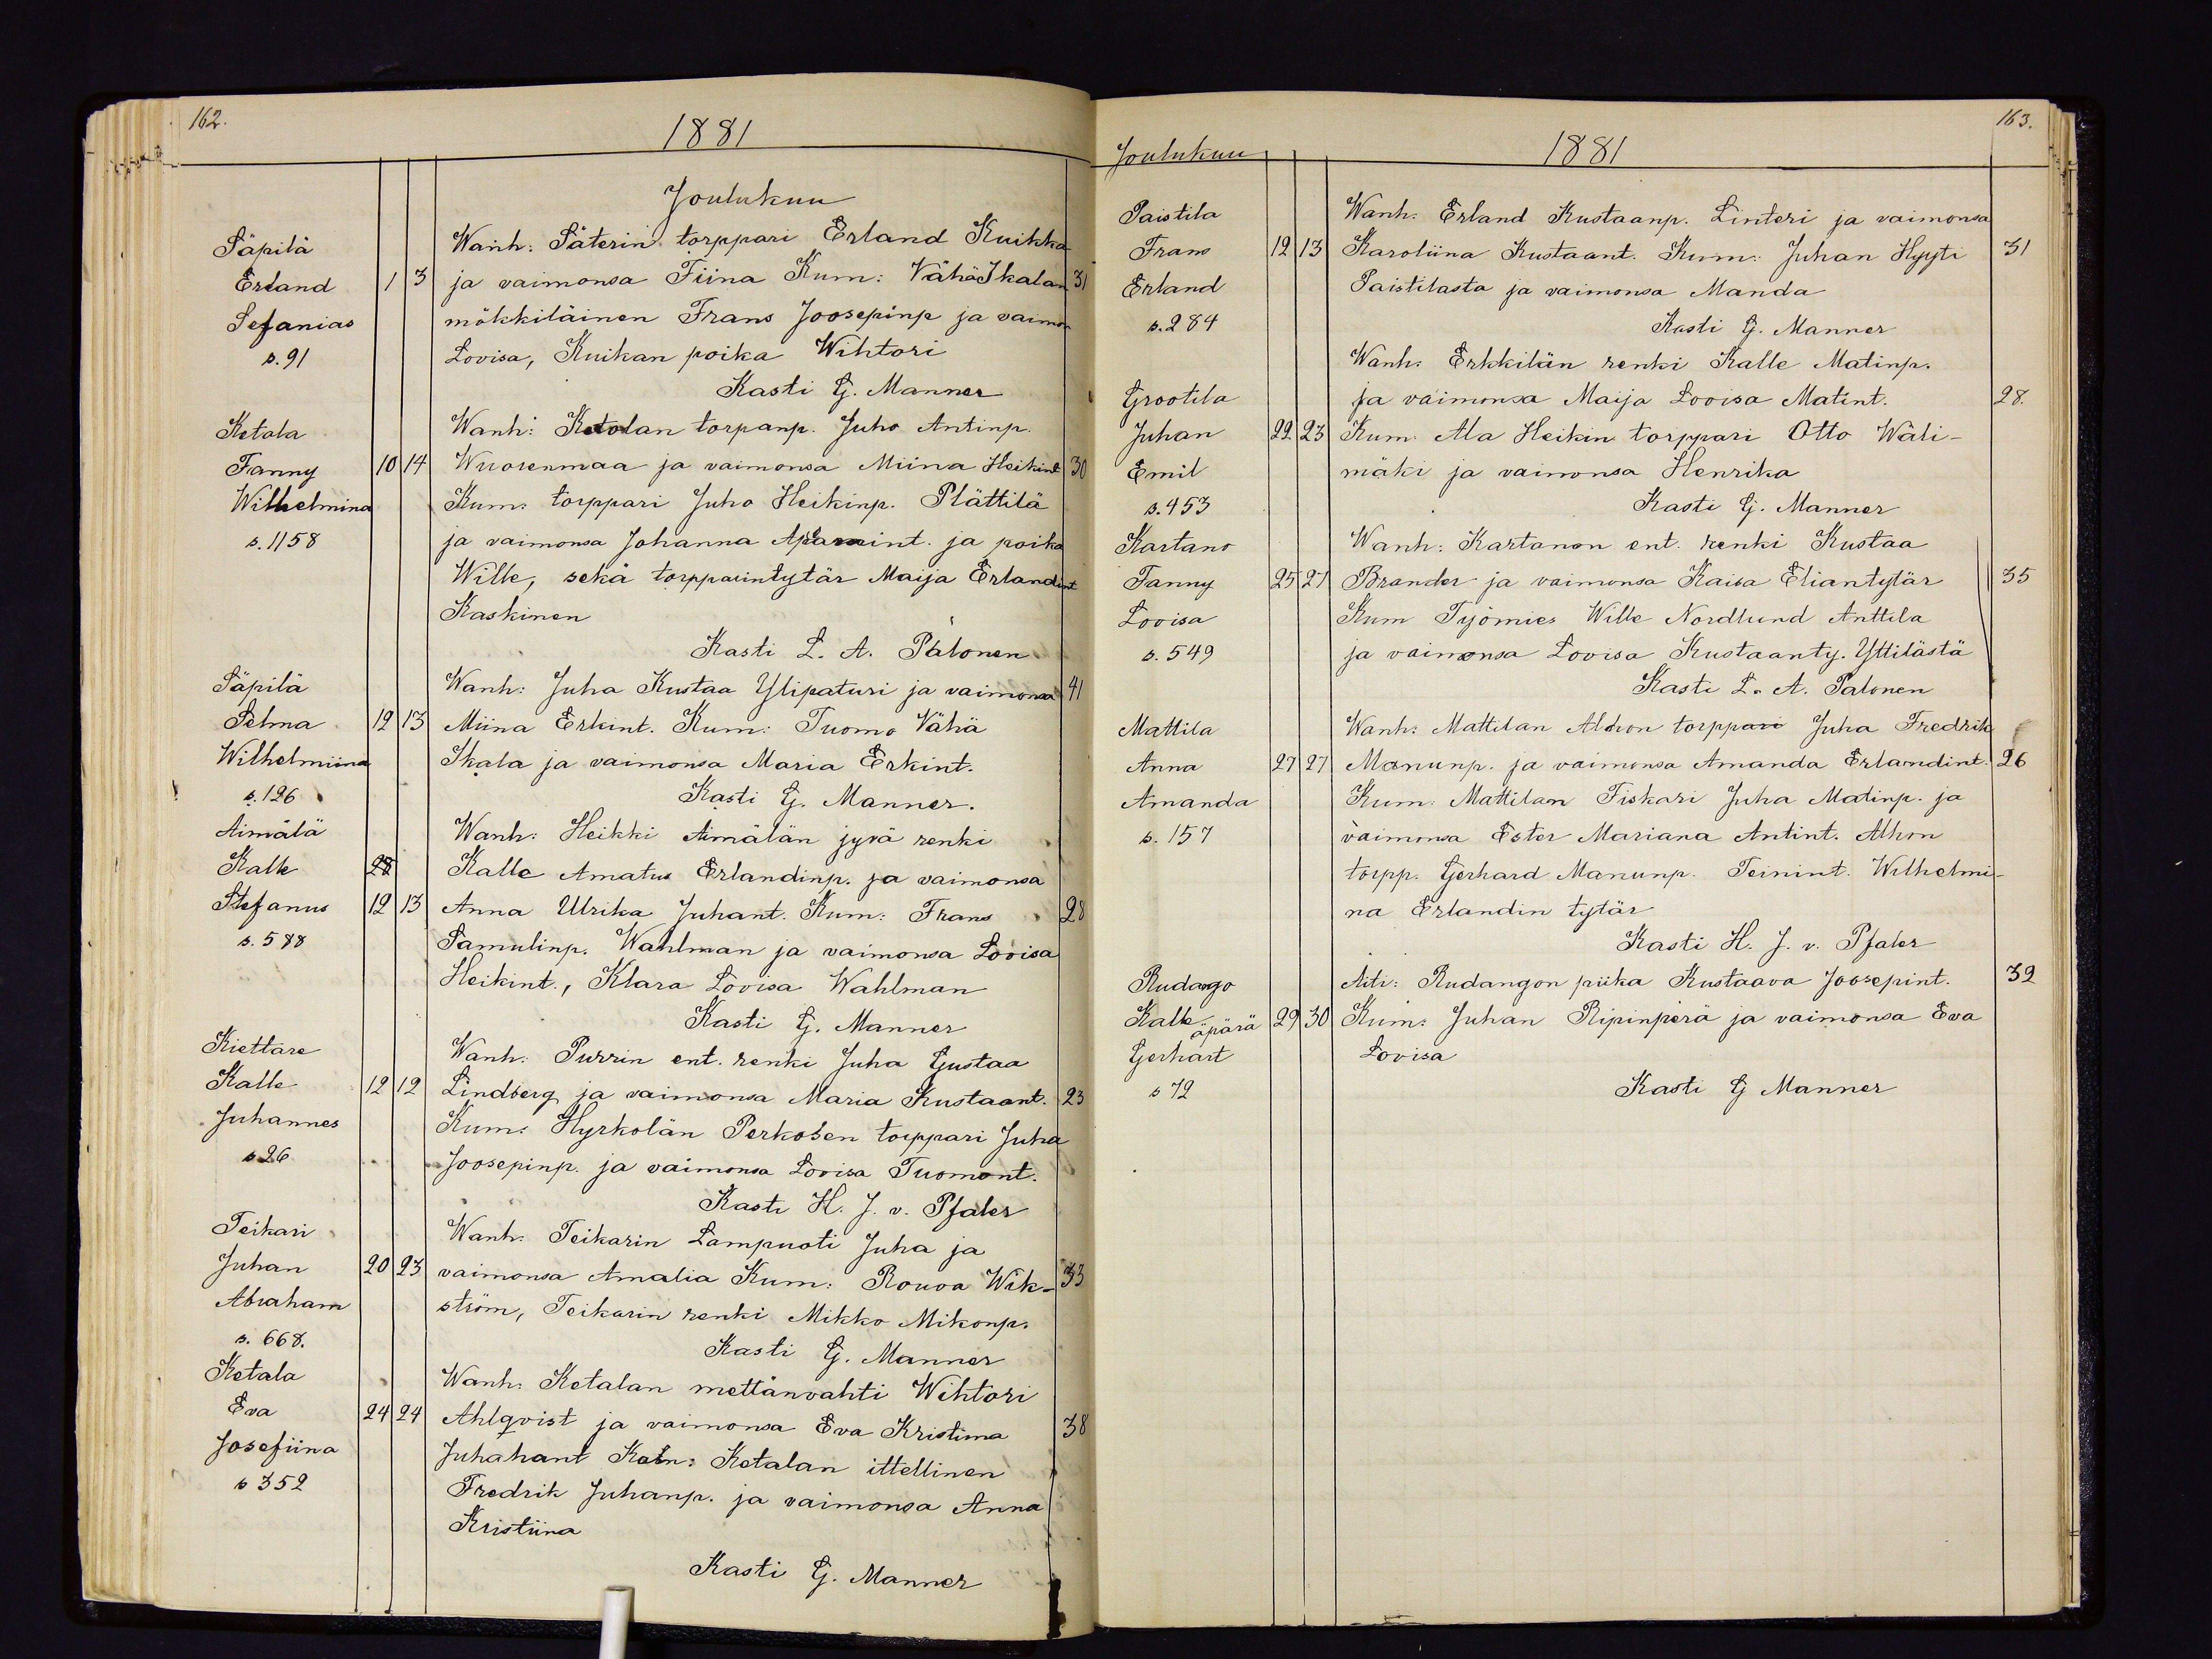 162.
1881
Joulukuu
Säpilä Wanh: Säterin torppari Erland Kuikka
Erland 1 3 ja vaimonsa Tiina Kum: Vähä Ikalan 31
Sefanias mökkiläinen Frans Joosepinp ja vaimon
s. 91 Lovisa, Kuikan poika Wihtori
Kasti G. Manner
Ketola Wanh: Ketolan torpanp. Juho Antinp.
Fanny 10 14 Wuorenmaa ja vaimonsa Miina Heikint 30
Wilhelmina Kum: torppari Juho Heikinp. Plättilä
s. 1158 ja vaimonsa Johanna ja poika
Wille, sekä torpparintytär Maija Erlandint
Kaskinen
Kasti L. A. Palonen
Säpilä Wanh: Juha Kustaa Ylipaturi ja vaimonsa 41
Selma 12 13 Miina Erkint. Kum: Tuomo Vähä
Wilhelmiina Ikala ja vaimonsa Maria Erkint.
s. 126 Kasti G. Manner.
Aimälä Wanh: Heikki Aimälän jyvä renki
Kalle 28 Kalle Amatus Erlandinp. ja vaimonsa
Stefanus 12 13 Anna Ulrika Juhant. Kum: Frans 28
s. 588 Samulinp. Wahlman ja vaimonsa Lovisa
Heikint., Klara Lovisa Wahlman
Kasti G. Manner
Kiettare Wanh: Purrin ent. renki Juha Gustaa
Kalle 12 12 Lindberg ja vaimonsa Maria Kustaant. 23
Juhannes Kum: Hyrkolän Perkosen torppari Juha
s 26 Joosepinp. ja vaimonsa Lovisa Tuomont.
Kasti H. J. v. Pfaler
Teikari Wanh: Teikarin Lampuoti Juha ja
Juhan 20 23 vaimonsa Amalia Kum: Rouva Wik- 33
Abraham ström, Teikarin renki Mikko Mikonp.
s. 668. Kasti G. Manner
Ketala Wanh: Ketalan mettänvahti Wihtori
Eva 24 24 Ahlqvist ja vaimonsa Eva Kristiina 38
Josefiina Juhahant Ketalan ittellinen
s 352 Fredrik Juhanp. ja vaimonsa Anna
Kristiina
Kasti G. Manner
163.
Joulukuu 1881
Paistila Wanh: Erland Kustaanp. Linteri ja vaimonsa
Frans 12 13 Karoliina Kustaant. Kum: Juhan Hyyti 31
Erland Paistilasta ja vaimonsa Manda
s. 284 Kasti G. Manner
Wanh: Erkkilän renki Kalle Matinp.
Grootila ja vaimonsa Maija Lovisa Matint. 28.
Juhan 22 23 Kum: Ala Heikin torppari Otto Wäli-
Emil mäki ja vaimonsa Henrika
s. 453 Kasti G. Manner
Kartano Wanh: Kartanon ent. renki Kustaa
Fanny 25 27 Brander ja vaimonsa Kaisa Eliantytär 35
Lovisa Kum Työmies Wille Nordlund Anttila
s. 549 ja vaimonsa Lovisa Kustaanty. Yttilästä
Kasti L. A. Palonen
Mattila Wanh: Mattilan Alhon torppari Juha Fredrik
Anna 27 27 Manunp. ja vaimonsa Amanda Erlandint. 26
Amanda Kum: Mattilan Fiskari Juha Matinp. ja
s. 157 vaimonsa Ester Mariana Antint. Alhon
torpp. Gerhard Manunp. Teinint. Wilhelmi-
na Erlandin tytär
Kasti H. J. v. Pfaler
Rudango Aiti: Rudangon piika Kustaava Joosepint. 32
Kalle äpärä 29 30 Kum: Juhan Ripinperä ja vaimonsa Eva
Gerhart Lovisa
s 72 Kasti G Manner